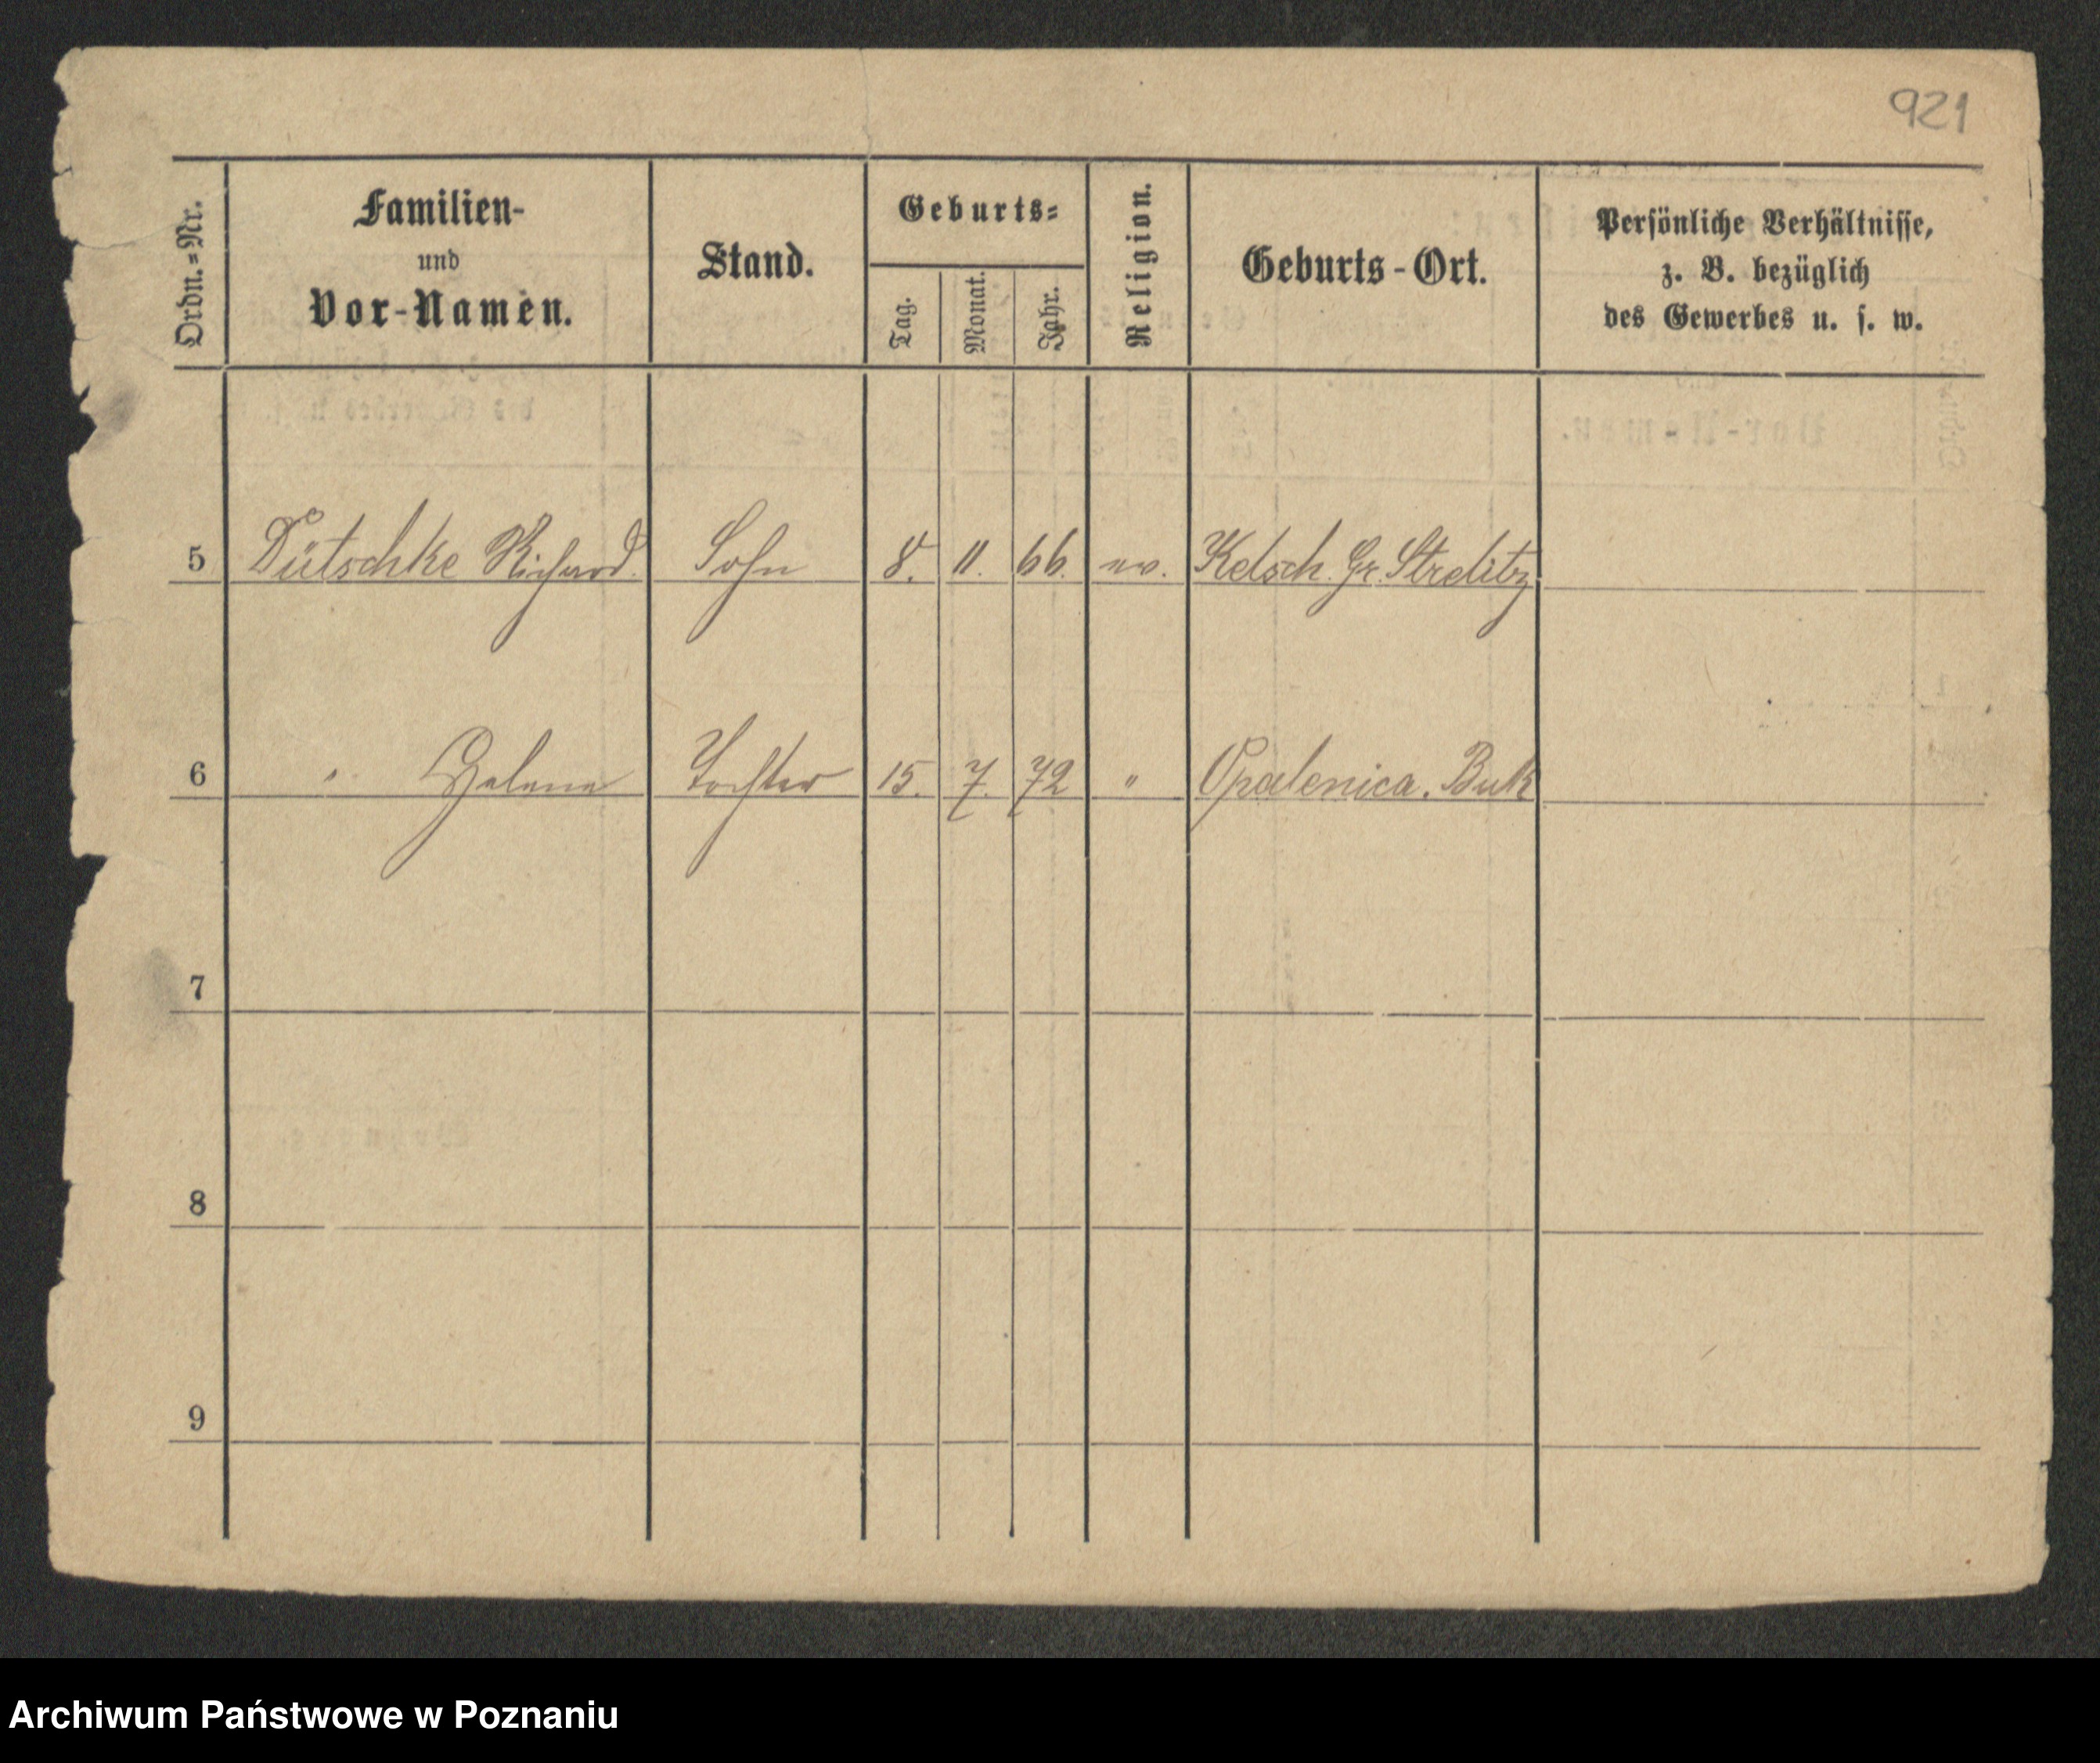 921
Ordn.=Nr.
Familien-
und
Vor-Namen.
Stand.
Geburts=
Tag.
Monat.
Jahr.
Religion.
Geburts-Ort.
Persönliche Verhältnisse,
z. B. bezüglich
des Gewerbes u. s. w.
5 Dütschke Richard. Sohn 8. 11. 66. ev. Kelsch. Gr. Strelitz
6 " Helene Tochter 15. 7. 72 " Opalenica. Buk
7
8
9
Archiwum Państwowe w Poznaniu